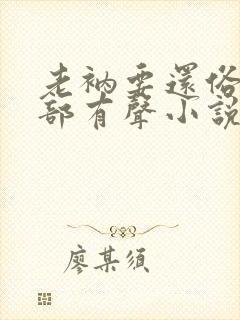 老衲要還俗
部有聲小說
廖某須